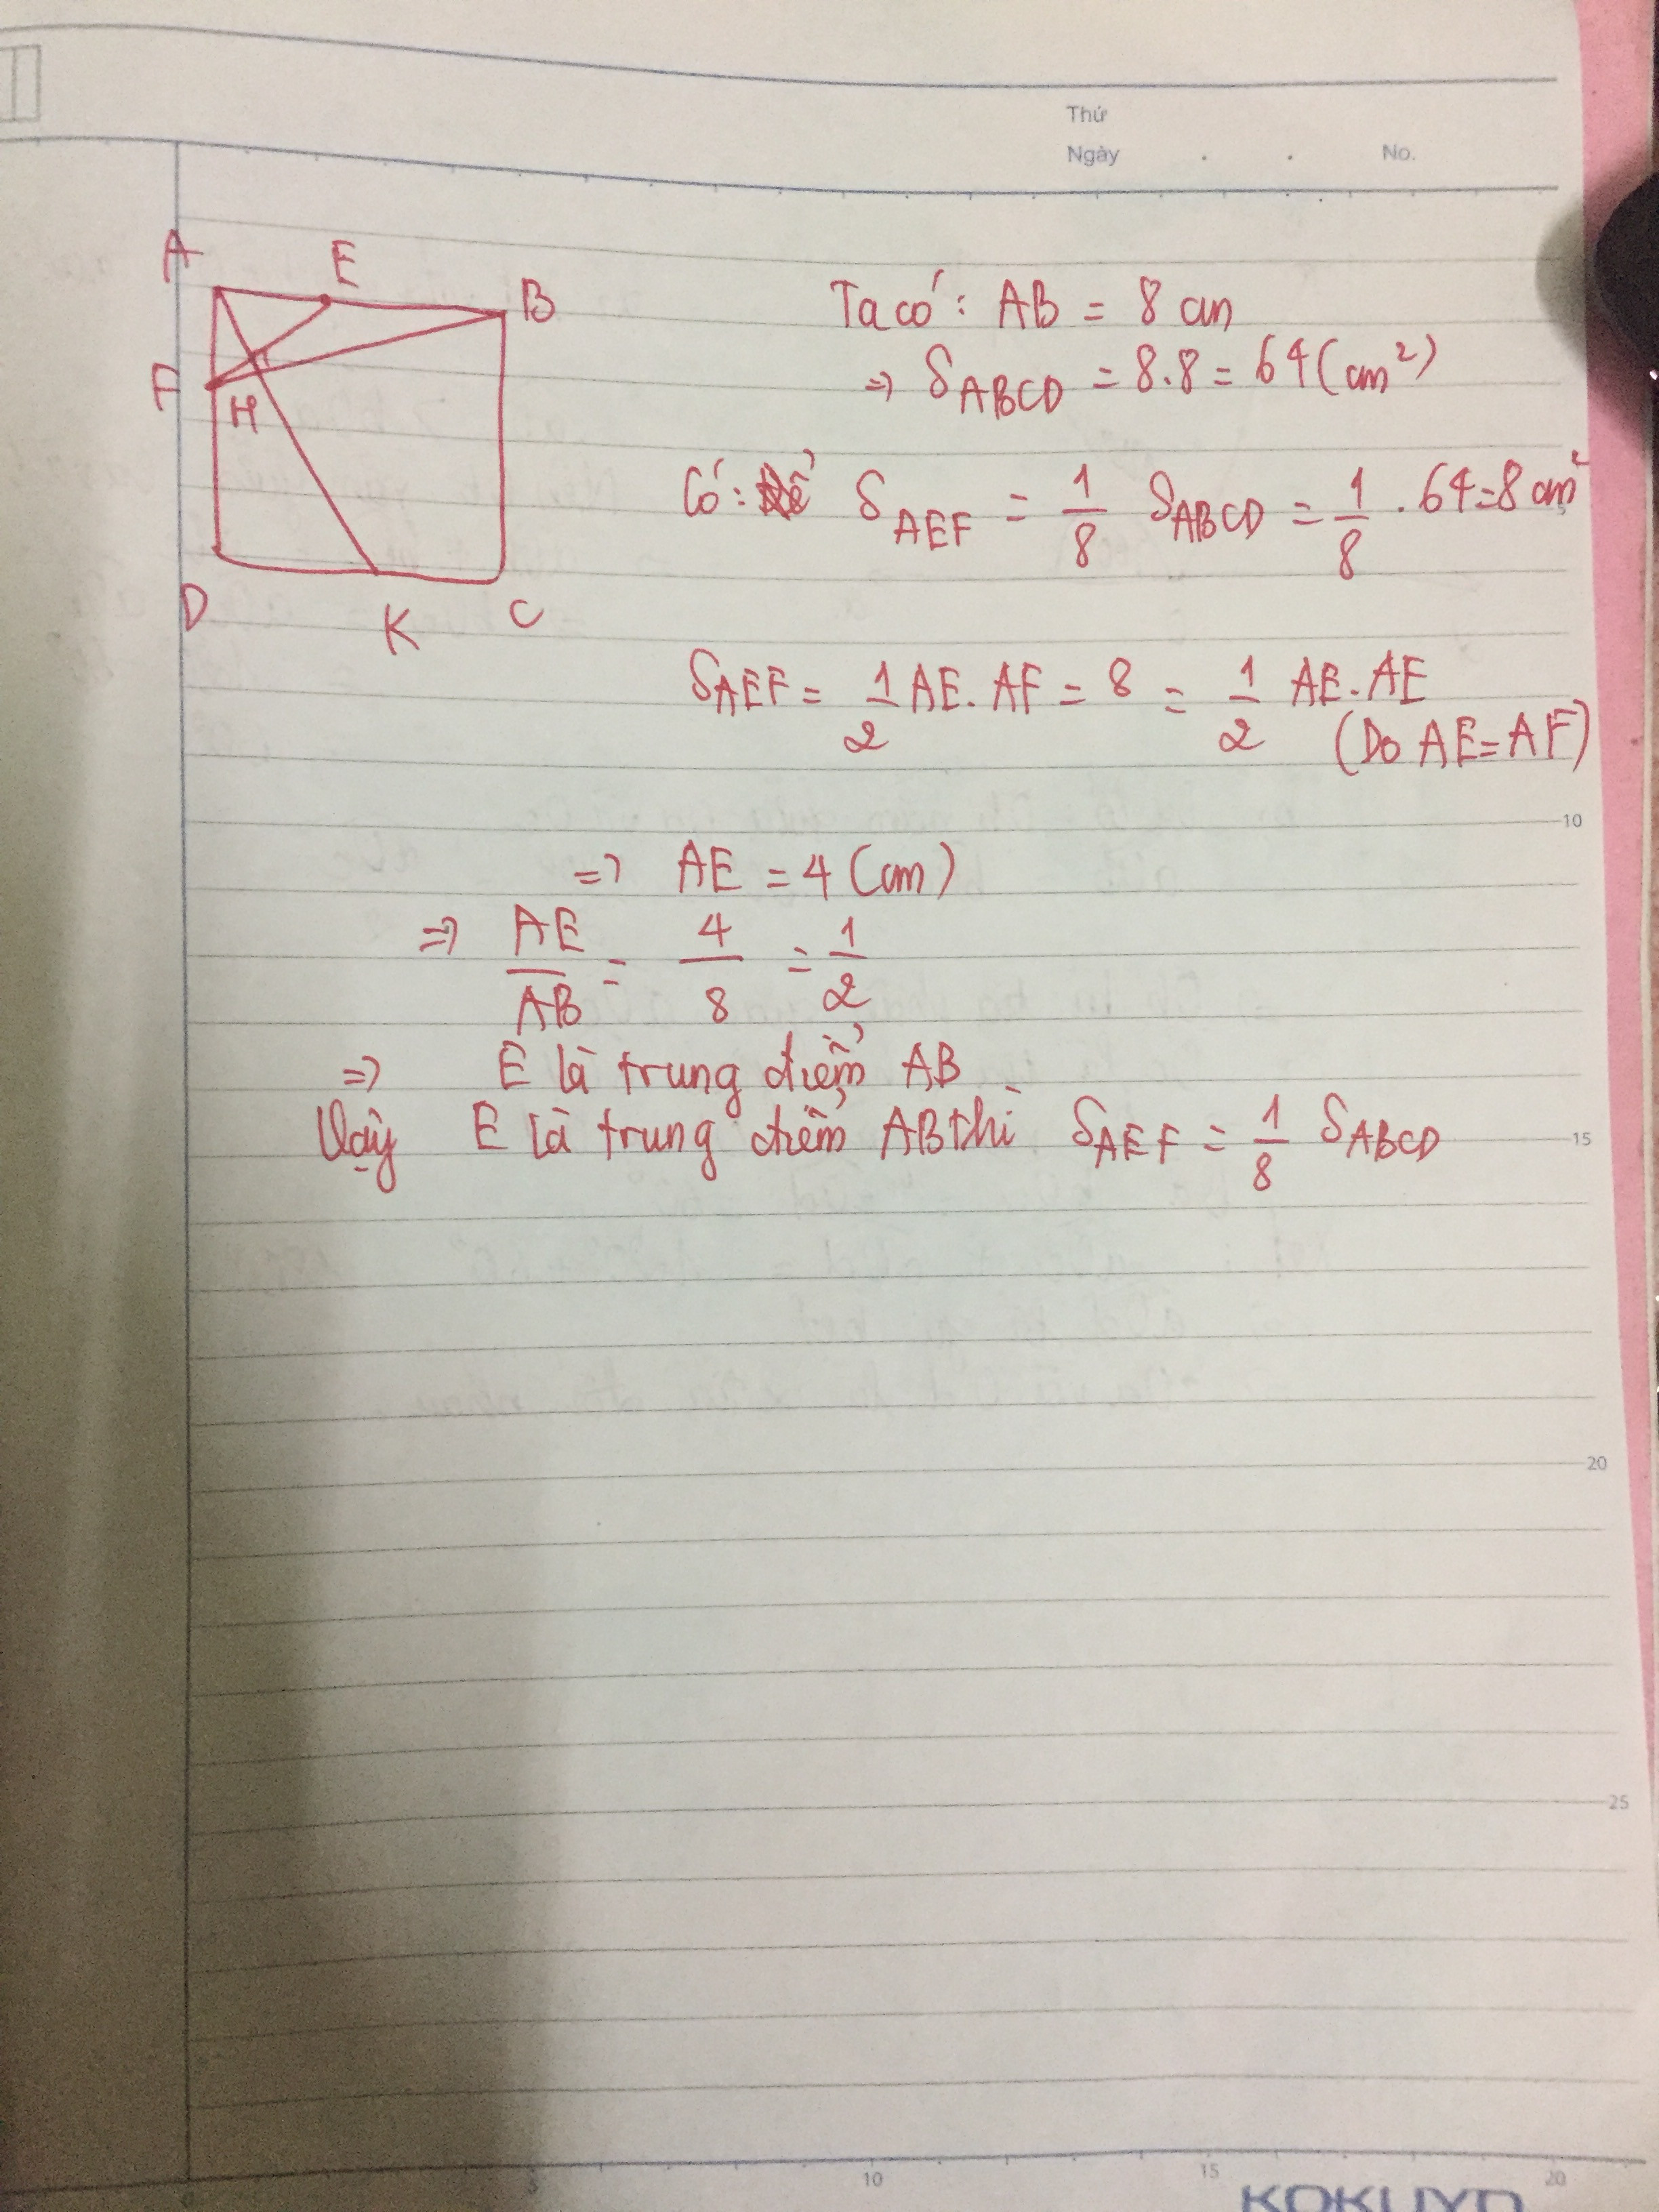 Thứ
Ngày . . No.
A E B
F H
D K C
Ta có: AB = 8 cm
=> SABCD = 8.8 = 64 (cm²)
Có: SAEF = 1/8 SABCD = 1/8 . 64 = 8 cm²
SAEF = 1/2 AE. AF = 8 = 1/2 AE. AE
(Do AE = AF)
=> AE = 4 (cm)
=> AE/AB = 4/8 = 1/2
=> E là trung điểm AB
Vậy E là trung điểm AB thì SAEF = 1/8 SABCD
10
15
20
25
5 10 15 20
KOKUYO